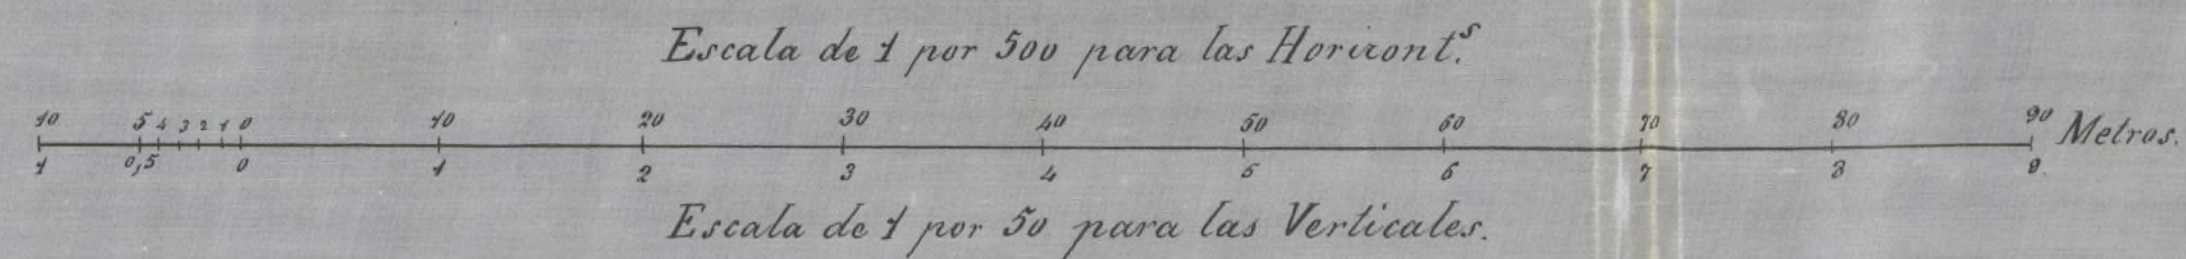 Escala de 1 por 500 para las Horizont.s
10 5 4 3 2 1 0 10 20 30 40 50 60 70 80 90 Metros.
1 0,5 0 1 2 3 4 5 6 7 8 9.
Escala de 1 por 50 para las Verticales.